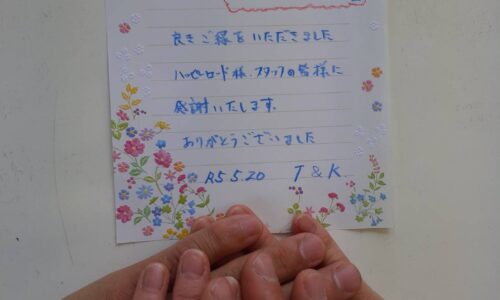 良きご縁をいただきました
ハッピーロード様、スタッフの皆様に
感謝いたします。
ありがとうございました
R5 5.20 T & K